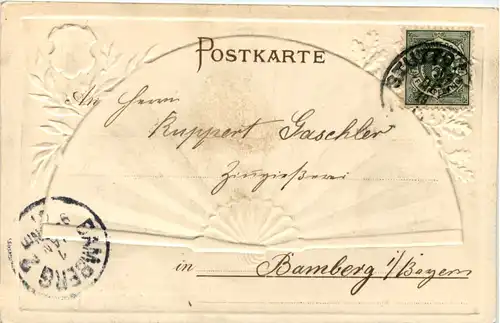 POSTKARTE
STUTTG
An Herrn
Ruppert Gaschler
Zinngießerei
BAMBERG 2
in Bamberg i/Bayern